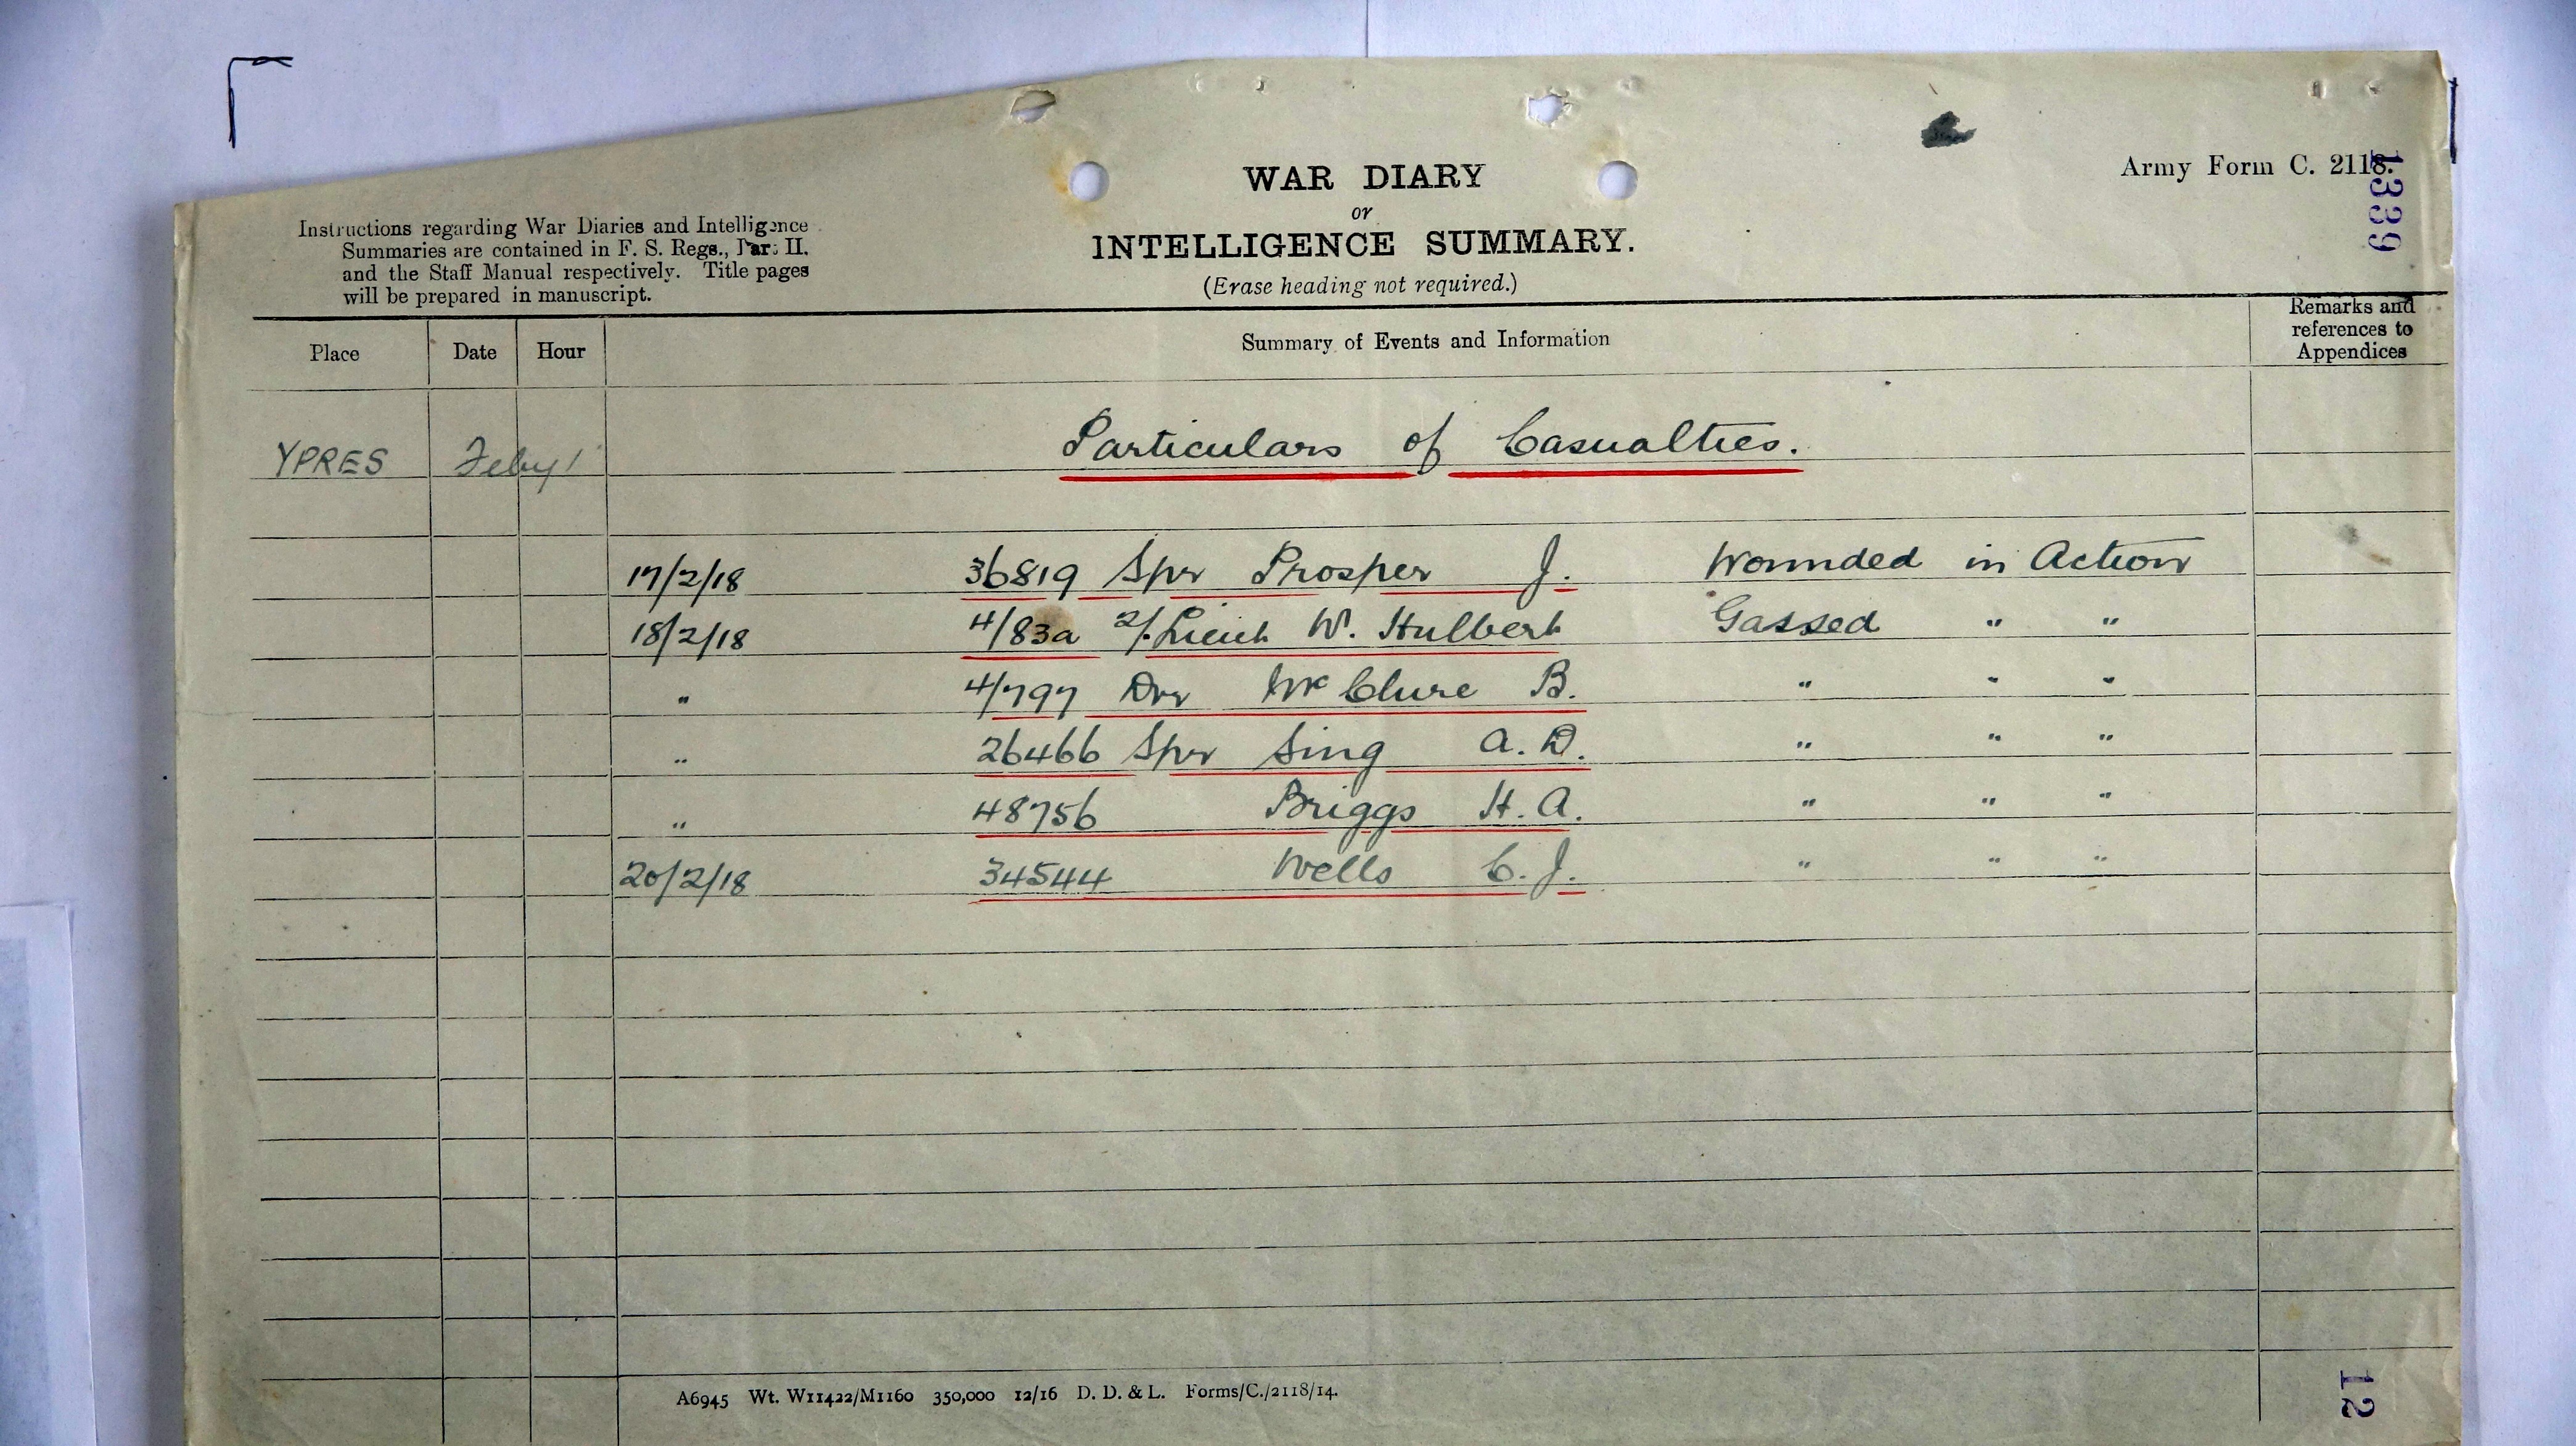 Army Form C. 2118.
1339
WAR DIARY
or
INTELLIGENCE SUMMARY.
(Erase heading not required.)
Instructions regarding War Diaries and Intelligence
Summaries are contained in F. S. Regs., Part II.
and the Staff Manual respectively. Title pages
will be prepared in manuscript.
Place Date Hour Summary of Events and Information Remarks and references to Appendices
YPRES Feby Particulars of Casualties.
17/2/18 36819 Spr Prosper J. Wounded in Action
18/2/18 4/83a 2/Lieut W. Hulbert Gassed " "
" 4/797 Dvr McClure B. " " "
" 26466 Spr Sing A. D. " " "
" 48756 Briggs H. A. " " "
20/2/18 34544 Wells C. J. " " "
A6945 Wt. W11422/M1160 350,000 12/16 D. D. & L. Forms/C./2118/14.
12